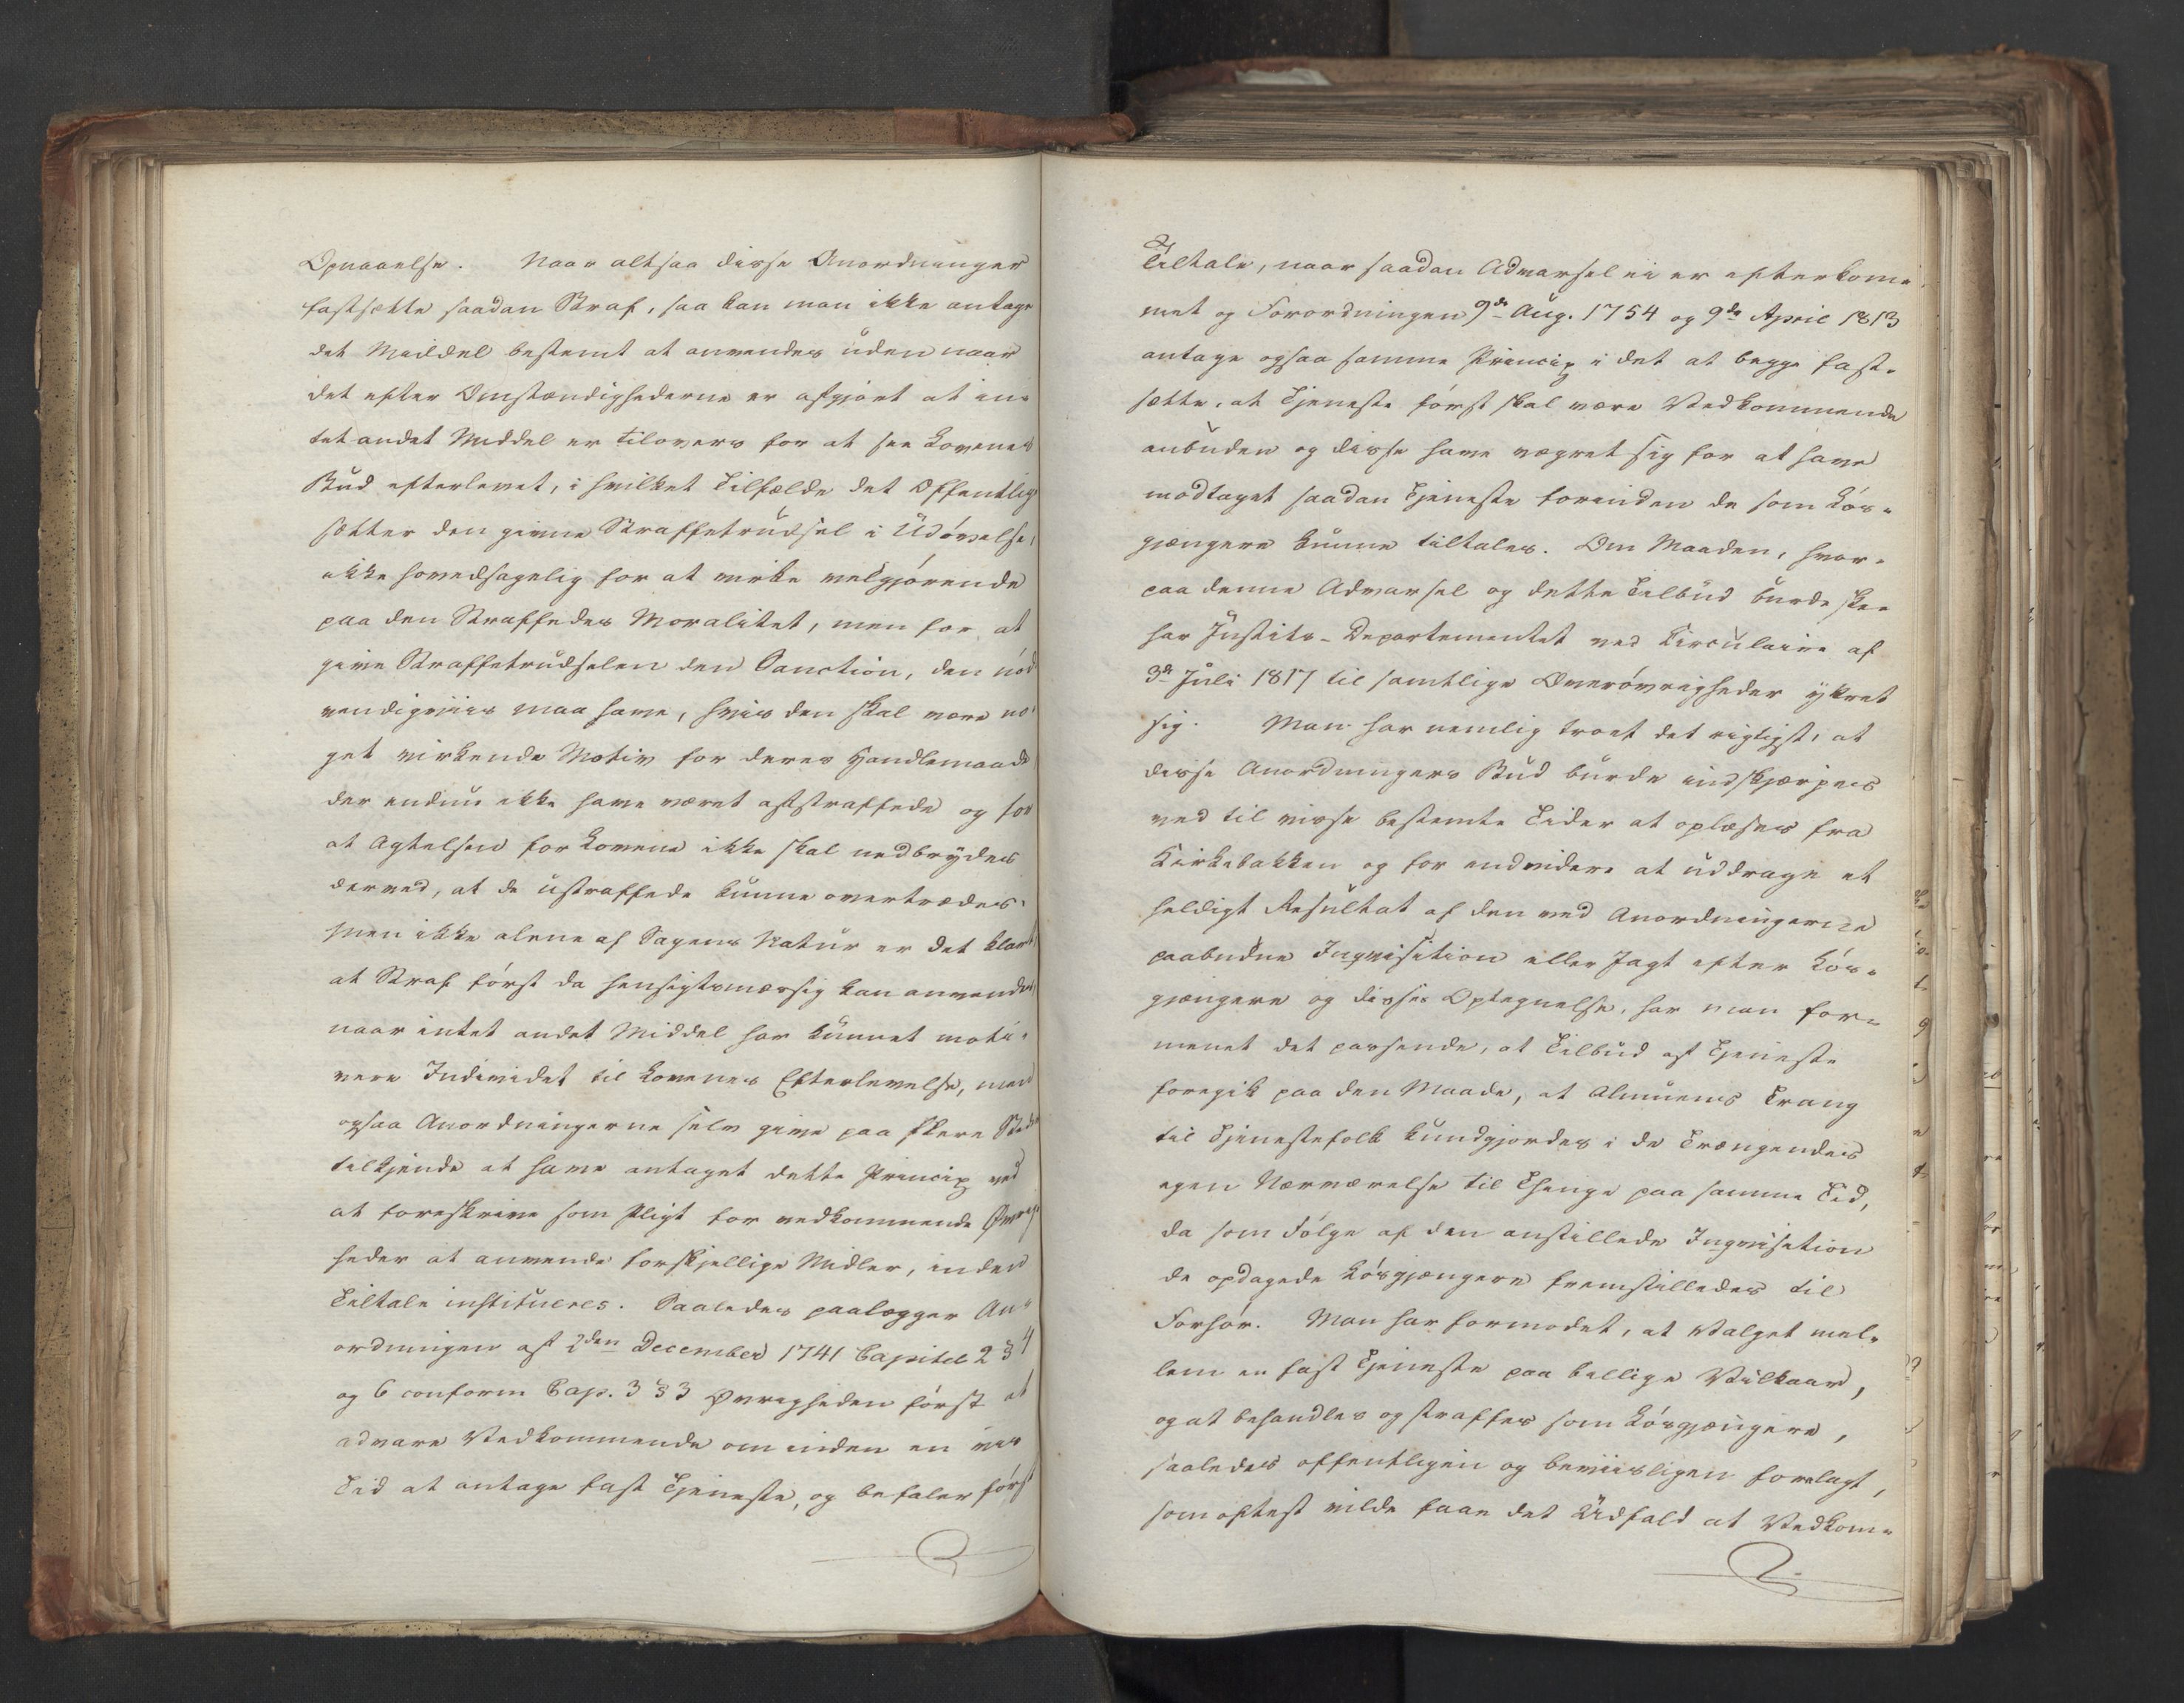 Opnaaelse. Naar altsaa disse Anordninger
fastsætte saadan Straf, saa kan man ikke antage
det Meiddel bestemt at anvendes uden naar
det efter Omstændighederne er afgjort at in-
tet andet Middel er tilovers for at see Lovenes
Bud efterlevet, i hvilket Tilfælde det Offentlige
sætter den givne Straffetrudsel i Udövelse,
ikke hovedsagelig for at virke velgjörende
paa den Straffedes Moralitet, men for at
give Straffetrudselen den Sanction, den nöd
vendigviis maa have, hvis den skal være no-
get virkende Motiv for deres Handlemaade
der endnu ikke have været afstraffede og for
at Agtelsen for Lovene ikke skal nedbrydes
derved, at de ustraffede kunne overtrædes.
Men ikke alene af Sagens Natur er det klart,
at Straf först da hensigtsmæssig kan anvendes,
naar intet andet Middel har kunnet moti-
vere Individet til Lovenes Efterlevelse, men
ogsaa Anordningerne selv give paa flere Steder
tilkjende at have antaget dette Princip ved
at foreskrive som Pligt for vedkommende Øvrig-
heder at anvende forskjellige Midler, inden
Tiltale institueres. Saaledes paalægger An-
ordningen af 2den December 1741 Capitel 2 § 4
og 6 conform Cap. 3 § 3 Øvrigheden först at
advare Vedkommende om inden en vis
Tid at antage fast Tjeneste, og befaler först
Tiltale, naar saadan Advarsel ei er efterkom-
met og Forordningen 9de Aug. 1754 og 9de April 1813
antage ogsaa samme Princip i det at begge fast-
sætte, at Tjeneste först skal være Vedkommende
anbuden og disse have vægret sig for at have
modtaget saadan Tjeneste forinden de som Lös-
gjængere kunne tiltales. Om Maaden, hvor-
paa denne Advarsel og dette Tilbud burde skee
har Justits-Departementet ved Circulaire af
3de Juli 1817 til samtlige Overövrigheder yttret
sig. Man har nemlig troet det rigtigst, at
disse Anordningers Bud burde indskjærpes
ved til visse bestemte Tider at oplæses fra
Kirkebakken og for endvidere at uddrage et
heldigt Resultat af den ved Anordningerne
paabudne Inqvisition eller Jagt efter Lös-
gjængere og disses Optegnelse, har man for-
menet det passende, at Tilbud af Tjeneste
foregik paa den Maade, at Almuens Trang
til Tjenestefolk kundgjordes i de Trængendes
egen Nærværelse til Thinge paa samme Tid,
da som Fölge af den anstillede Inqvisition
de opdagede Lösgjængere fremstilledes til
Forhör. Man har formodet, at Valget mel-
lem en fast Tjeneste paa billige Vilkaar,
og at behandles og straffes som Lösgjængere,
saaledes offentligen og beviisligen forelagt,
som oftest vilde faae det Udfald at Vedkom-